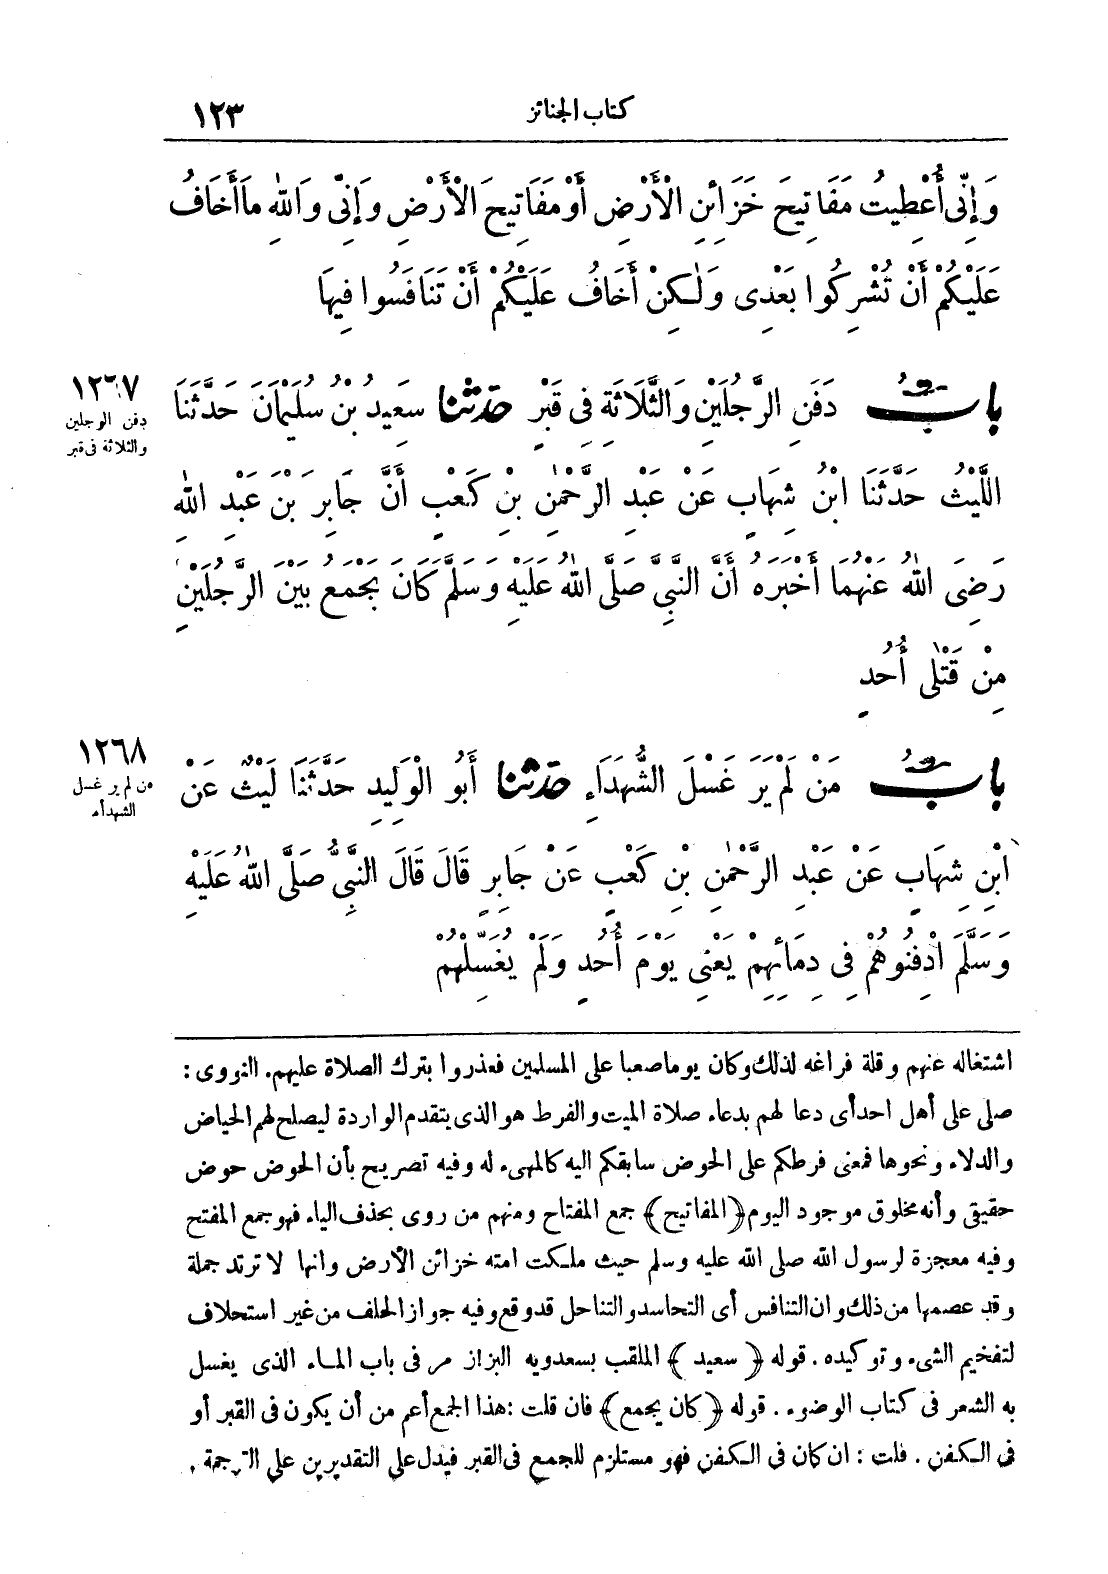 كتاب الجنائز ١٢٣
وَإِنِّى أُعْطِيتُ مَفَاتِيحَ خَزَائِنِ الْأَرْضِ أَوْ مَفَاتِيحَ الْأَرْضِ وَإِنِّى وَاللهِ مَا أَخَافُ
عَلَيْكُمْ أَنْ تُشْرِكُوا بَعْدِى وَلٰكِنْ أَخَافُ عَلَيْكُمْ أَنْ تَنَافَسُوا فِيهَا
١٢٦٧
دفن الرجلين
والثلاثة فى قبر
بابُ دَفَنِ الرَّجُلَيْنِ وَالثَّلَاثَةِ فِى قَبْرٍ حَدثنا سَعِيدُ بْنُ سُلَيْمَانَ حَدَّثَنَا
اللَّيْثُ حَدَّثَنَا ابْنُ شِهَابٍ عَنْ عَبْدِ الرَّحْمٰنِ بْنِ كَعْبٍ أَنَّ جَابِرَ بْنَ عَبْدِ اللهِ
رَضِىَ اللهُ عَنْهُمَا أَخْبَرَهُ أَنَّ النَّبِىَّ صَلَّى اللهُ عَلَيْهِ وَسَلَّمَ كَانَ يَجْمَعُ بَيْنَ الرَّجُلَيْنِ
مِنْ قَتْلَى أُحُدٍ
١٢٦٨
من لم ير غسل
الشهداء
بابُ مَنْ لَمْ يَرَ غَسْلَ الشُّهَدَاءِ حَدثنا أَبُو الْوَلِيدِ حَدَّثَنَا لَيْثٌ عَنْ
ابْنِ شِهَابٍ عَنْ عَبْدِ الرَّحْمٰنِ بْنِ كَعْبٍ عَنْ جَابِرٍ قَالَ قَالَ النَّبِىُّ صَلَّى اللهُ عَلَيْهِ
وَسَلَّمَ ادْفِنُوهُمْ فِى دِمَائِهِمْ يَعْنِى يَوْمَ أُحُدٍ وَلَمْ يُغَسِّلْهُمْ
اشتغاله عنهم وقلة فراغه لذلك وكان يوما صعبا على المسلمين فعذروا بترك الصلاة عليهم. النووى :
صلى على أهل احد أى دعا لهم بدعاء صلاة الميت والفرط هو الذى يتقدم الواردة ليصلح لهم الحياض
والدلاء ونحوها فمعنى فرطكم على الحوض سابقكم اليه كالمهىء له وفيه تصريح بأن الحوض حوض
حقيقى وأنه مخلوق موجود اليوم ﴿المفاتيح﴾ جمع المفتاح ومنهم من روى بحذف الياء فهو جمع المفتح
وفيه معجزة لرسول الله صلى الله عليه وسلم حيث ملكت امته خزائن الأرض وانها لا ترتد جملة
وقد عصمها من ذلك وان التنافس أى التحاسد والتناحل قد وقع وفيه جواز الحلف من غير استحلاف
لتفخيم الشىء وتوكيده . قوله ﴿ سعيد ﴾ الملقب بسعدويه البزاز مر فى باب الماء الذى يغسل
به الشعر فى كتاب الوضوء . قوله ﴿كان يجمع﴾ فان قلت : هذا الجمع أعم من أن يكون فى القبر أو
فى الكفن . قلت : ان كان فى الكفن فهو مستلزم للجمع فى القبر فيدل على التقديرين على الترجمة .